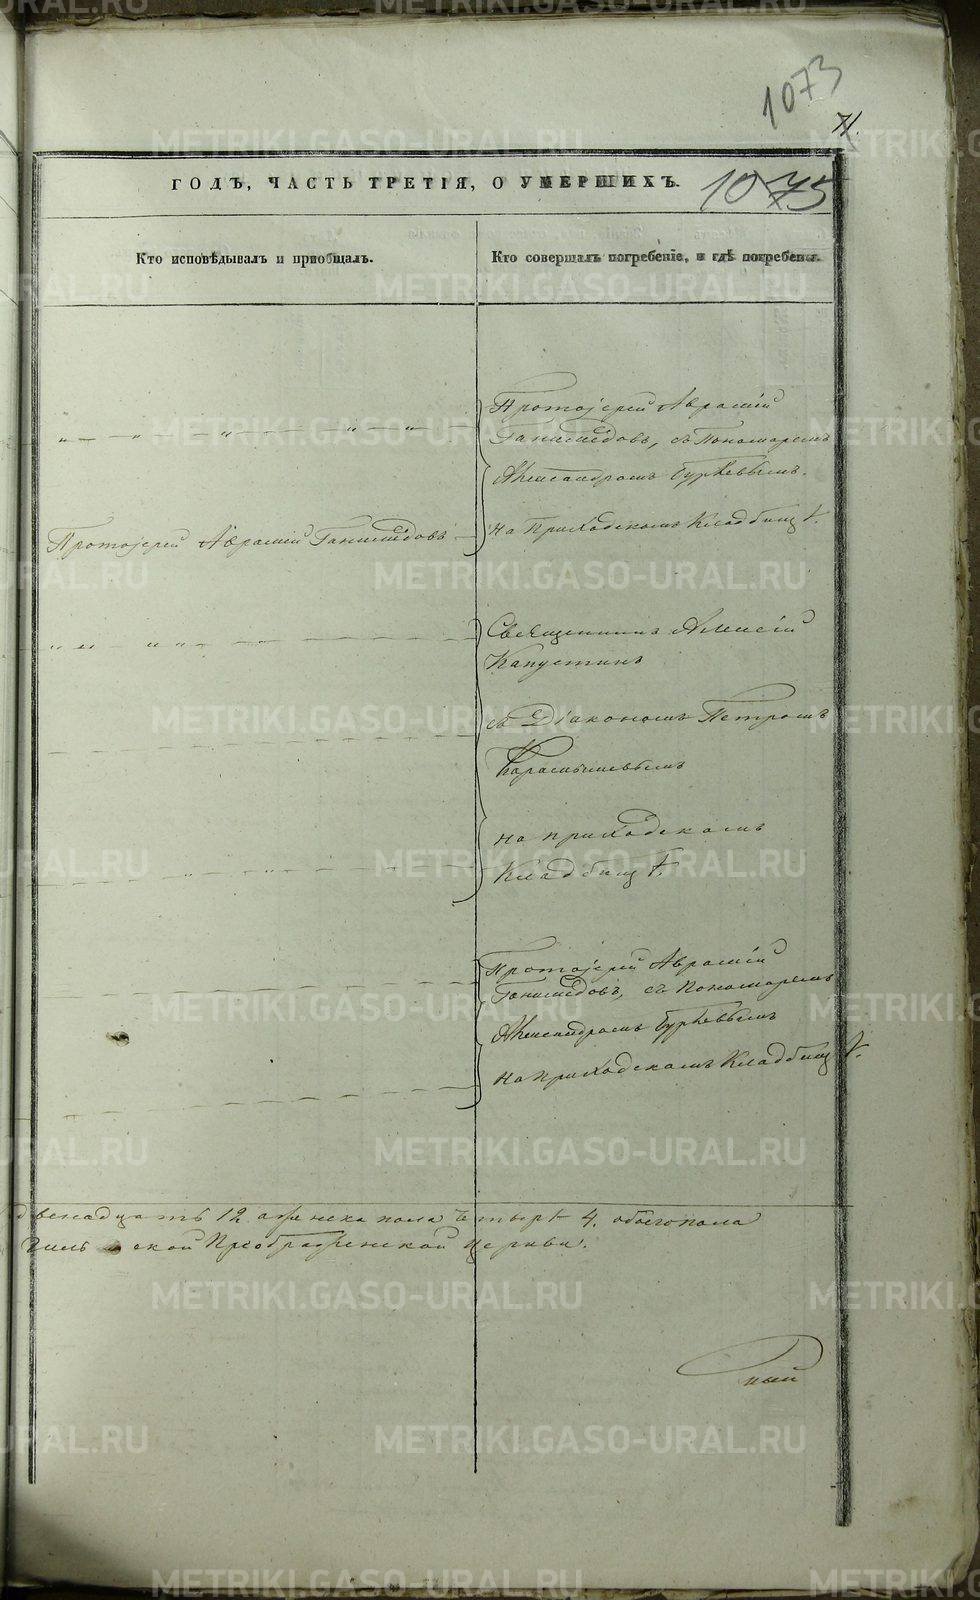 1073
71.
1075
ГОДЪ, ЧАСТЬ ТРЕТІЯ, О УМЕРШИХЪ.
Кто исповѣдывалъ и пріобщалъ.
Кто совершалъ погребеніе, и гдѣ погребены.
Протоіерей Аврамій
Ганимедовъ, съ Пономаремъ
Александромъ
На Приходскомъ Кладбищѣ.
Протоіерей Аврамій Ганимедовъ
Священникъ Алексій
Капустинъ
съ Діакономъ Петромъ
Карамышевымъ
на приходскомъ
Кладбищѣ.
Протоіерей Аврамій
Ганимедовъ, съ Пономаремъ
Александромъ
на приходскомъ Кладбищѣ.
двенадцать 12 а женска пола четыре 4. обоего пола
ской Преображенской Церкви.
METRIKI.GASO-URAL.RU